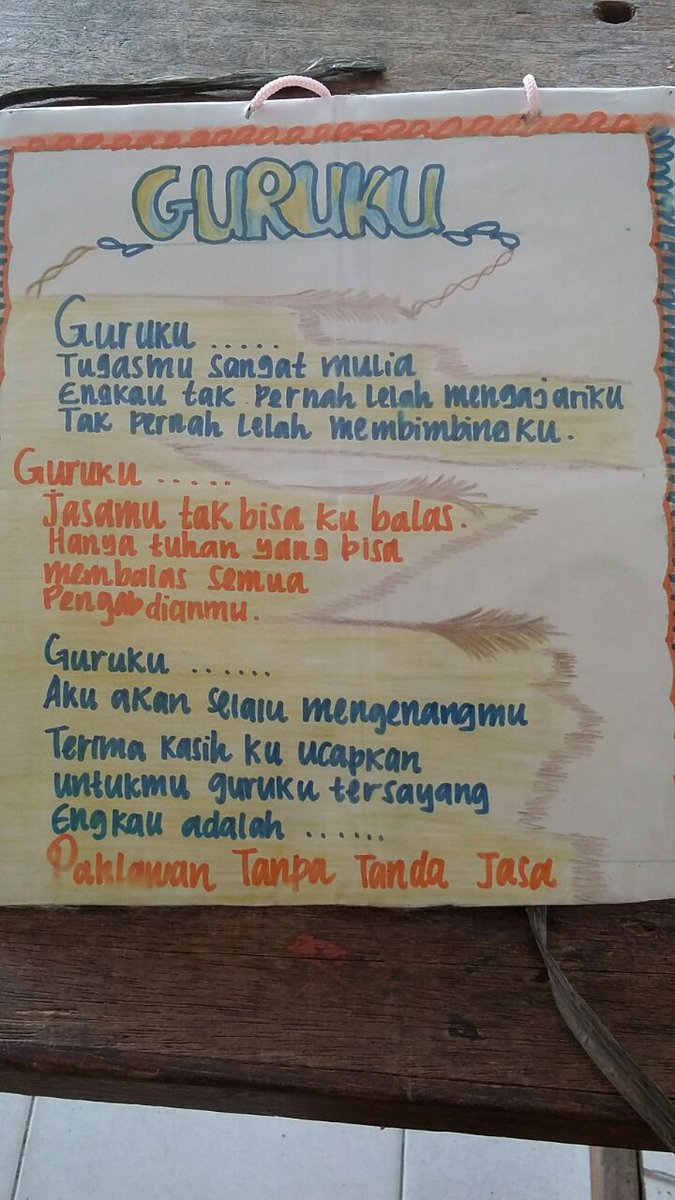 GURUKU
Guruku .....
Tugasmu sangat mulia
Engkau tak pernah lelah mengajariku
Tak pernah lelah membimbingku.
Guruku .....
Jasamu tak bisa ku balas.
Hanya tuhan yang bisa
membalas semua
Pengabdianmu.
Guruku ......
Aku akan selalu mengenangmu
Terima kasih ku ucapkan
untukmu guruku tersayang
Engkau adalah ......
Pahlawan Tanpa Tanda Jasa